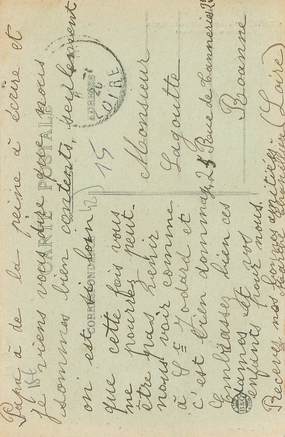 Papa à de la peine à écrire et
je viens vous dire que nous
sommes bien contents, seulement
on est si born
que cette fois vous
ne pourdez peut
être pas venir
nous voir comme
à St Jodard et
c'est bien dommage
Embrassez bien ces
dames et vos
enfants pour nous.
Recevez nos bonnes amitiés
CARTE POSTALE
CORRESPONDANCE
LOIRE
15
Monsieur
Lagoutte
25 Rue de Tanneries 25
Roanne
(Loire)